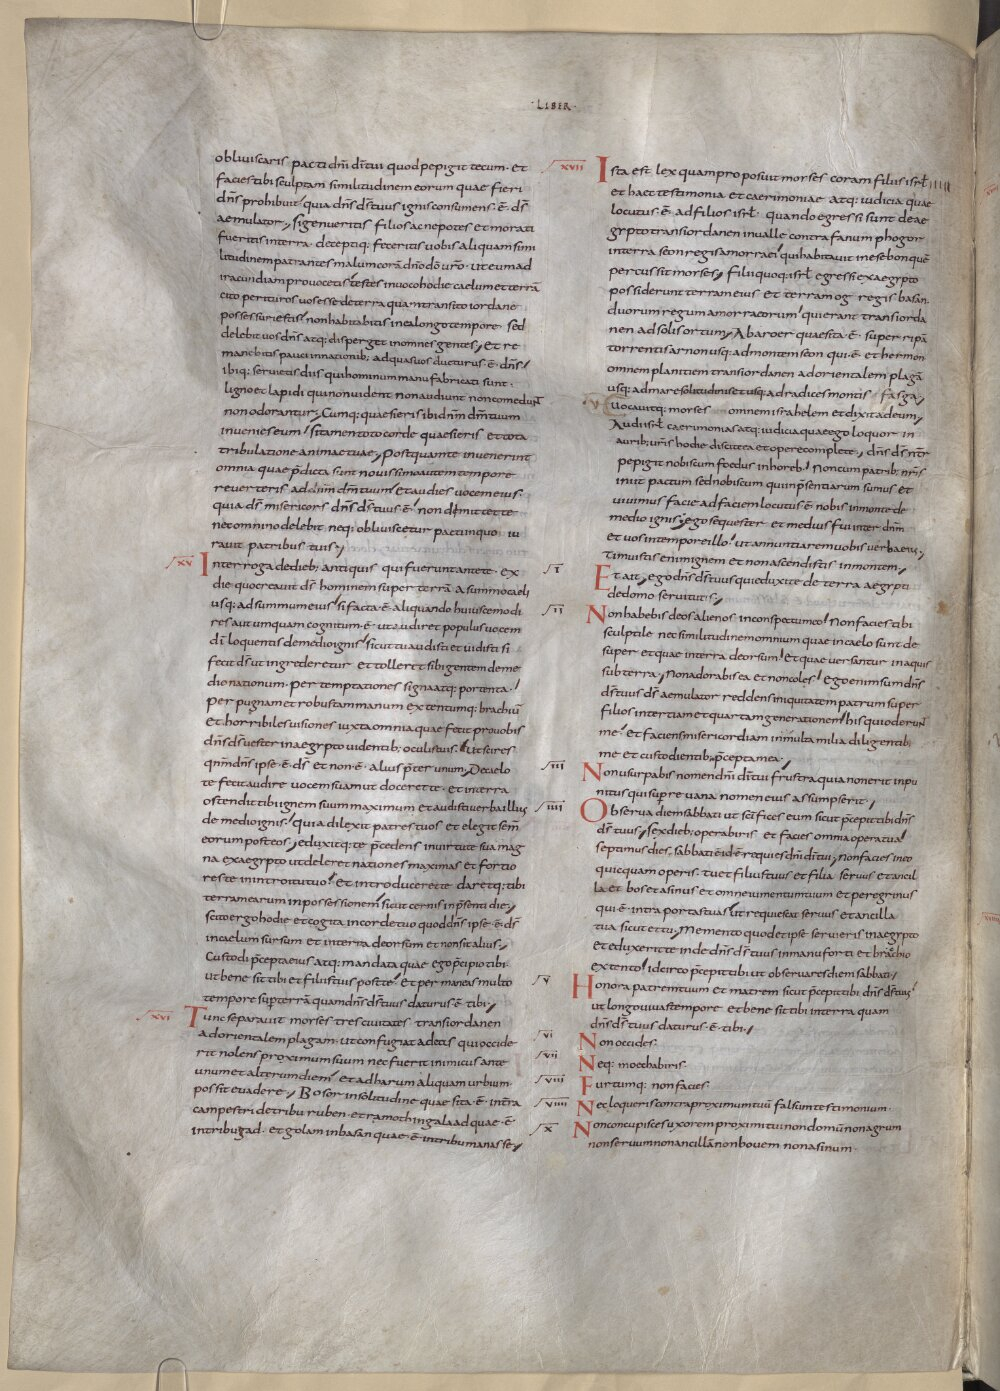 ·LIBER·
obliuiscaris pacti dñi dītui quod pepigit tecum· et
facies tibi sculptam similitudinem eorum quae fieri
dñs prohibuit quia dñs ds̄ tuus ignis consumens· ē· ds̄
aemulator; sigenueritis filios ac nepotes et morati
fueritis interra· deceptiq; feceritis uobis aliquam simi
litudinem patrantes malum corā dño dō uro· ut eum ad
iracundiam prouocetis testes inuoco hodie caelum et terrā
cito perituros uos esse deterra quam transito iordane
possessuri estis non habitabitis inea longo tempore· sed
delebit uos dñs atq; disperget inomnes gentes; et re
manebitis pauci innationib; ad quas uos ducturus· ē· dñs
ibiq; seruietis diis qui hominum manu fabricati sunt·
ligno et lapidi qui non uident non audiunt non comedunt
non odorantur; Cumq; quaesieris ibi dnm dm̄ tuum
inuenies eum si tamen toto corde quaesieris et tota
tribulatione animae tuae; Postquam te inuenerint
omnia quae p̄dicta sunt nouissimo autem tempore
reuerteris ad dnm dm̄ tuum et audies uocem eius·
quia ds̄ misericors dñs ds̄ tuus· ē· non dimittet te
nec omnino delebit neq; obliuiscetur pacti in quo iu
rauit patribus tuis;
XV Interroga dedieb; antiquis qui fuerunt ante te· ex
die quo creauit ds̄ hominem super terrā a summo caeli
usq; ad summum eius si facta· ē· aliquando huiuscemodi
res aut umquam cognitum· ē· ut audiret populus uocem
dī loquentis demedio ignis sicut tu audisti et uidisti si
fecit ds̄ ut ingrederetur et tolleret sibi gentem deme
dio nationum· per temptationes signa atq; portenta·
per pugnam et robustam manum extentumq; brachiū
et horribiles uisiones iuxta omnia quae fecit pro uobis
dñs ds̄ uester in aegypto uidentib; oculis tuis ut scires
qnm dñs ipse· ē· ds̄ et non· ē· alius p̄ter unum; De caelo
te fecit audire uocem suam ut doceret te· et interra
ostendit tibi ignem suum maximum et audisti uerba illius
de medio ignis quia dilexit patres tuos et elegit sem̄
eorum post eos; eduxitq; te p̄cedens in uirtute sua mag
na ex aegypto ut deleret nationes maximas et fortio
res te in introitu tuo et introduceret te daretq; tibi
terram earum in possessionem sicut cernis in p̄senti die;
scito ergo hodie et cogita in corde tuo quod dñs ipse· ē· ds̄
in caelum sursum et interra deorsum et non sit alius;
Custodi p̄cepta eius atq; mandata quae ego p̄cipio tibi·
ut bene sit tibi et filiis tuis post te et permaneas multo
tempore sup terrā quam dñs ds̄ tuus daturus· ē· tibi;
XVI Tunc separauit moyses tres ciuitates transiordanen
ad orientalem plagam· ut confugiat ad eas qui occide
rit nolens proximum suum nec fuerit inimicus ante
unum et alterum diem et ad harum aliquam urbium
possit euadere; Bosor in solitudine quae sita· ē· in terra
campestri de tribu ruben· et ramoth in galaad quae· ē·
in tribu gad· et golam in basan quae· ē· in tribu manasse;
XVII Ista est lex quam proposuit moyses coram filiis isrł
et haec testimonia et caerimoniae atq; iudicia quae
locutus· ē· ad filios isrł· quando egressi sunt deae
gypto transiordanen in ualle contra fanum phogor
interra seon regis amorraei qui habitauit in esebon quē
percussit moyses; Filii quoq; isrł egressi ex aegypto
possiderunt terram eius et terram og regis basan·
duorum regum amorraeorum qui erant transiorda
nen ad solis ortum; Abaroer quae sita· ē· super ripā
torrentis arnon usq; ad montem seon qui· ē· et hermon
omnem planitiem transiordanen ad orientalem plagā
usq; ad mare solitudinis et usq; ad radices montis fasga;
Vocauitq; moyses omnem israhelem et dixit ad eum;
Audi isrł caerimonias atq; iudicia quae ego loquor in
aurib; uris hodie discite ea et opere complete; dñs ds̄ nr̄
pepigit nobiscum foedus in horeb Non cum patrib; nr̄is
iniit pactum sed nobiscum qui in p̄sentiarum sumus et
uiuimus facie ad faciem locutus· ē· nobis in monte de
medio ignis; ego sequester et medius fui inter dnm
et uos in tempore illo ut annuntiarem uobis uerba eius;
Timuistis enim ignem et non ascendistis in montem;
I Et ait; ego dñs ds̄ tuus qui eduxi te de terra aegypti
de domo seruitutis;
II Non habebis deos alienos in conspectu meo Non facies tibi
sculptile nec similitudinem omnium quae in caelo sunt de
super et quae interra deorsum et quae uersantur in aquis
sub terra; Non adorabis ea et non coles Ego enim sum dñs
ds̄ tuus ds̄ aemulator reddens iniquitatem patrum super
filios in tertiam et quartam generationem his qui oderunt
me et faciens misericordiam in multa milia diligentib;
me et custodientib; p̄cepta mea·
III Non usurpabis nomen dñi dī tui frustra quia non erit inpu
nitus qui super re uana nomen eius assumpserit·
IIII Obserua diem sabbati ut sc̄ifices eum sicut p̄cepit tibi dñs
ds̄ tuus; sex dieb; operabiris et facies omnia opera tua
septimus dies· sabbati ē id ē requies dñi dī tui; non facies in eo
quicquam operis· tu et filius tuus et filia· seruus et ancil
la et bos et asinus et omne iumentum tuum et peregrinus
qui· ē· intra portas tuas ut requiescat seruus et ancilla
tua sicut et tu; Memento quod et ipse seruieris in aegypto
et eduxerit te inde dñs ds̄ tuus in manu forti et brachio
extento idcirco p̄cepit tibi ut obseruares diem sabbati;
V Honora patrem tuum et matrem sicut p̄cepit tibi dñs ds̄ tuus
ut longo uiuas tempore et bene sit tibi interra quam
dñs ds̄ tuus daturus· ē· tibi;
VI Non occides·
VII Neq; moechabiris·
VIII Furtumq; non facies·
VIIII Nec loqueris contra proximum tuū falsum testimonium·
X Non concupisces uxorem proximi tui non domū non agrum
non seruum non ancillā non bouem non asinum·